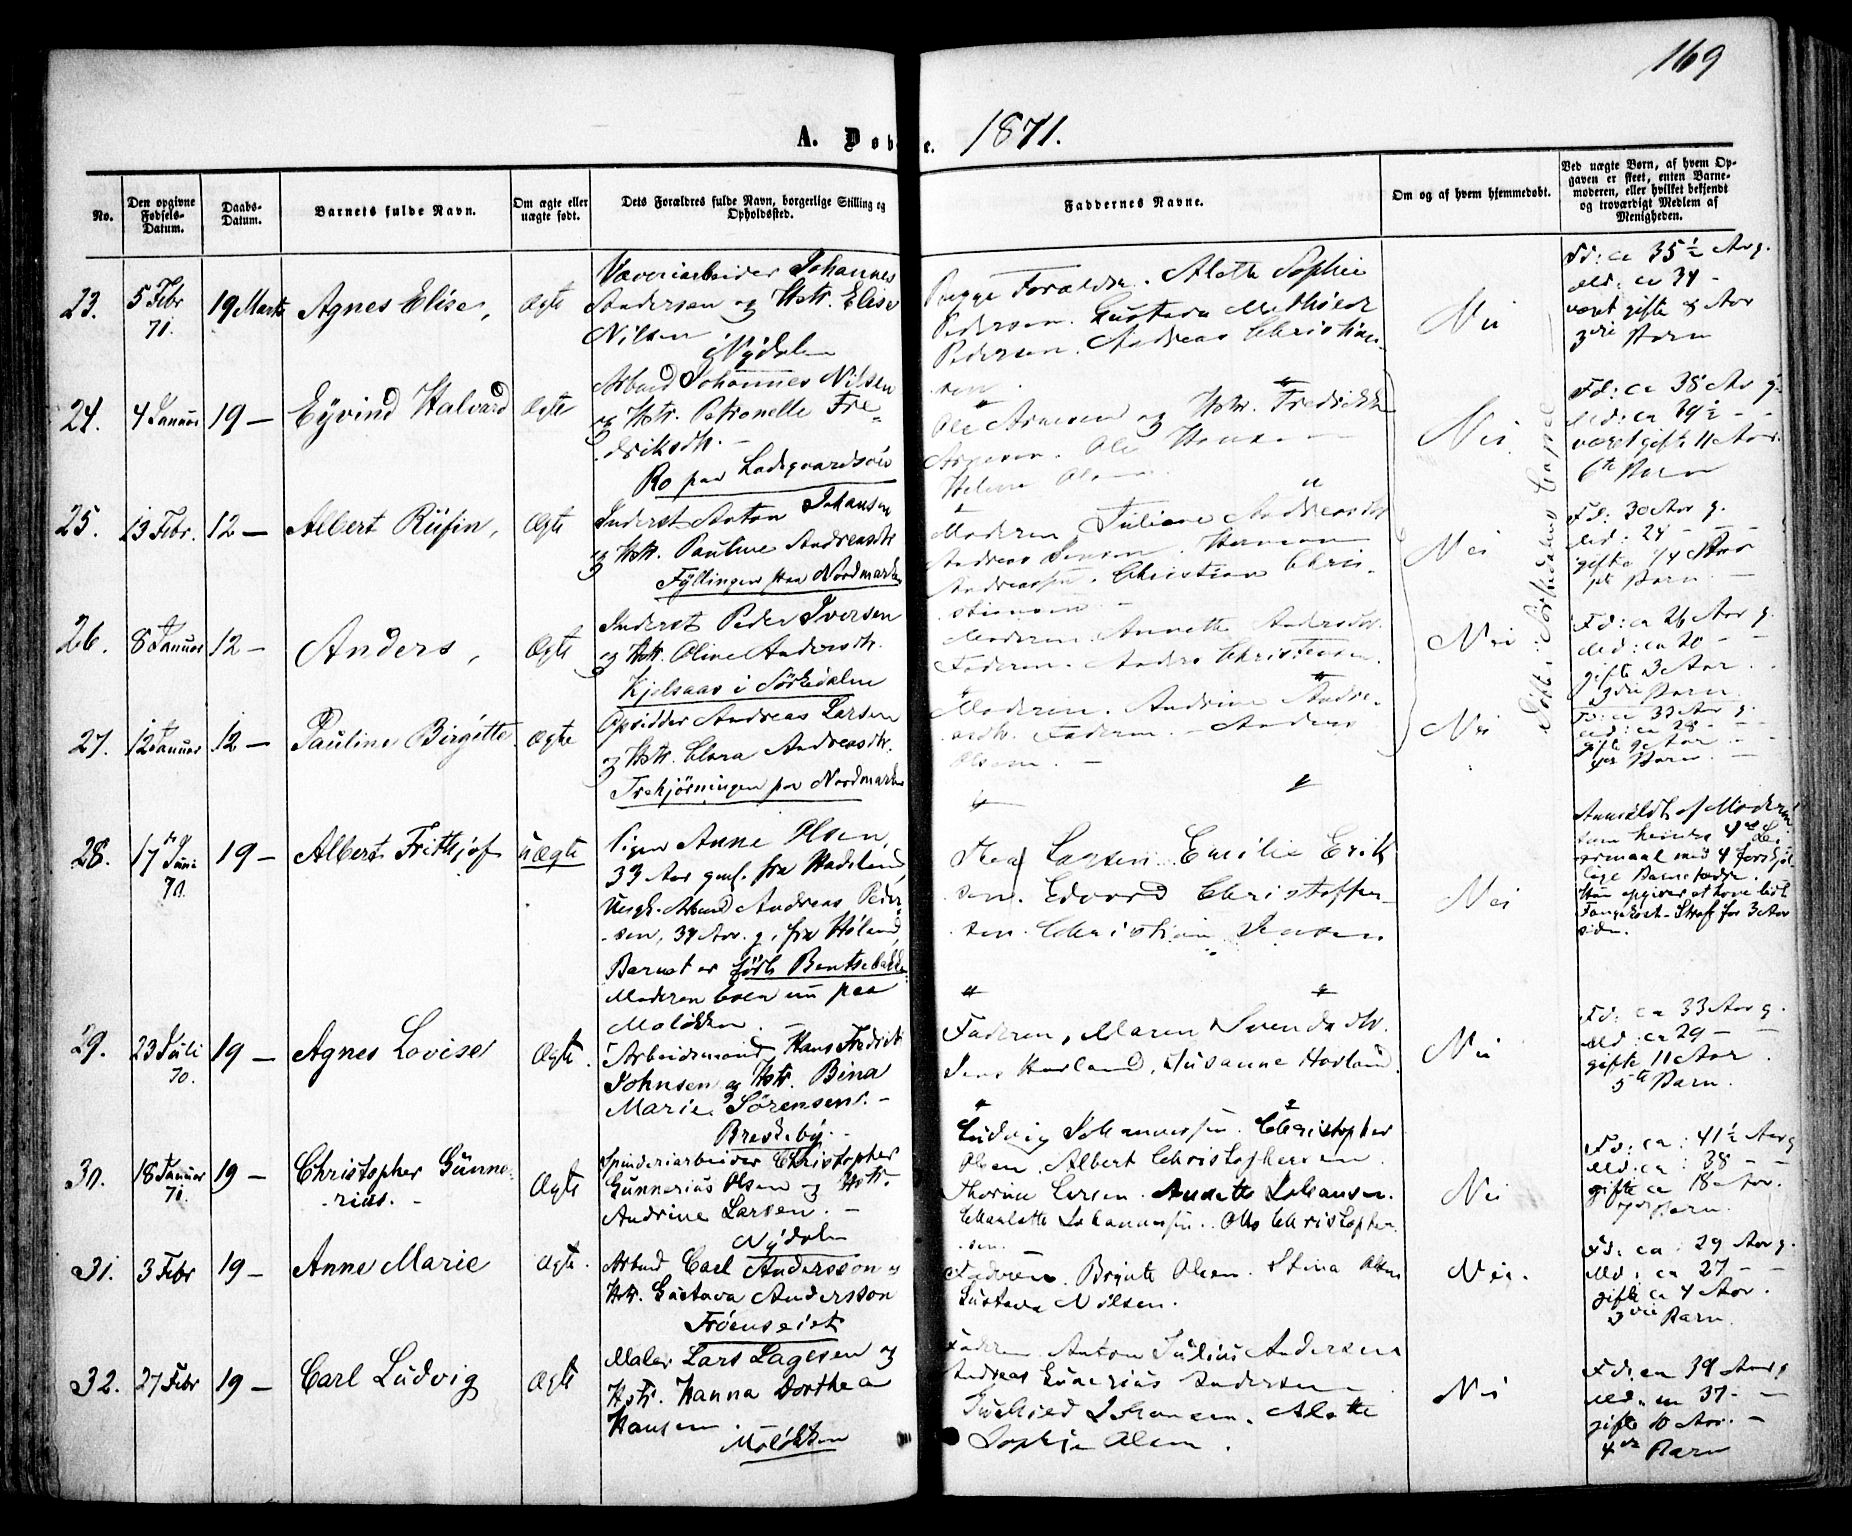 169
A. Døbte. 1871.
No.
Den opgivne Fødsels-Datum.
Daabs-Datum.
Barnets fulde Navn.
Om ægte eller uægte født.
Dets Forældres fulde Navn, borgerlige Stilling og Opholdssted.
Faddernes Navne.
Om og af hvem hjemmedøbt.
Ved uægte Børn, af hvem Opgaven er skeet, enten Barnemoderen, eller hvilket bekjendt og troværdigt Medlem af Menigheden.
23. 5 Febr 71. 19 Marts Agnes Elise, Ægte
Væveriarbeider Johannes
Andersen og Hstr. Elise
Nilsen
i Nydalen
Begge Forældre. Aleth Sophie
Pedersen. Gustava Mathilde
Pedersen. Andreas Christian-
sen
Nei
Fd: ca 35½ Aar g.
Md: ca 34 -
været gifte 8 Aar
3die Barn
24. 4 Januar 19 — Eyvind Halvard Ægte
Arbmd Johannes Nilsen
og Hstr. Petronelle Fre-
driksdtr. —
Ro paa Ladegaardsøen
Ole Arnesen og Hstr. Fredrikke
Arnesen. Ole Hansen
Helene Olsen
Nei
Fd: ca 38 Aar g.
Md: ca 39½ - -
været gifte 11 Aar.
6te Barn
25. 13 Febr. 12 — Albert Rufin, Ægte
Inderst Anton Johansen
og Hstr. Pauline Andreasdtr
Fyllingen paa Nordmarken
Moderen Juliane Andreasdtr
Andreas Jensen. Herman
Andreassen. Christian Chris-
tiansen —
Nei
Fd: 30 Aar g.
Md: 24 - -
gifte 1/4 Aar
1ste Barn —
26. 8 Januar 12 — Anders, Ægte
Inderst Peder Iversen
og Hstr. Oline Andersdtr.
Kjelsaas i Sørkedalen
Moderen. Annette Andersdtr.
Faderen. Anders Christensen.
Nei
Fd: ca 26 Aar g.
Md: ca 20 - -
gifte 3 Aar.
3die Barn.
27. 12 Januar 12 — Pauline Birgitte Ægte
Opsidder Andreas Larsen
og Hstr. Clara Andreasdtr.
Trehjørningen paa Nordmarken
Moderen. Andrine Andre-
asdtr. Faderen. — Anders
Olsen. —
Nei
Fd: ca 33 Aar g.
Md: ca 28 -
gifte 9 Aar
4de Barn —
Døbt i Sørkedalens Capel
28. 17 Juni 70. 19 — Albert Frithjof uÆgte
Pigen Anne Olsen,
33 Aar gml. fra Hadeland,
Ungk. Arbmd Andreas Peder-
sen, 34 Aar. g. fra Høland,
Barnet er født Bentsebakke
Moderen boer nu paa
Moløkken. —
Thea Larsen. Emilie Erik
sen. Edvard Christoffer-
sen. Christian Jensen.
Nei
Anmeldt af Moderen
som hendes 4de Lei-
ermaal med 4 forskjel-
lige Barnefædre.
Han opgives at have lidt
Fangekost-Straf for 3 Aar
siden.
29. 23 Juli 70. 19 — Agnes Lovise Ægte.
Arbeidsmand Hans Fredrik
Johnsen og Hstr. Bina
Marie Sørensen. —
Breskeby. —
Faderen, Maren Svendsdtr.
Jens Havland, Susanne Havland.
Nei
Fd: ca 33 Aar g.
Md: ca 29 — —
gifte 11 Aar.
5te Barn.
30. 18 Januar 71. 19 — Christopher Gunne-
rius. — Ægte
Spinderiarbeider Christopher
Gunnerius Olsen og Hstr.
Andrine Larsen. —
Nydalen
Ludvig Johannessen. Christopher
Olsen. Albert Christophersen
Thorine Larsen. Annette Johansen.
Charlotte Johannessen. Otto Christopher-
sen.
Nei
Fd: ca: 41½ Aar g
Md: ca: 38 — —
gifte ca 18 Aar.
7de Barn.
31. 3 Febr 19 — Anne Marie Ægte.
Arbmd Carl Andersson og
Hstr. Gustava Andersson
Frøenseiet
Faderen. Birgitte Olsen. Stina Olsen
Gustava Nilsen.
Nei.
Fd: ca: 29 Aar g.
Md: ca 27 - -
gifte ca 4 Aar.
3die Barn.
32. 27 Febr 19 — Carl Ludvig Ægte
Maler Lars Lagesen og
Hstr. Hanna Dorthea
Hansen.
Moløkken
Faderen Anton Julius Andersen
Andreas Gunerius Andersen
Svehild Johansen. Alette
Sophie Olsen.
Nei
Fd: en 39 Aar g
Md: en 37 - —
gifte 10 Aar. —
4de Barn